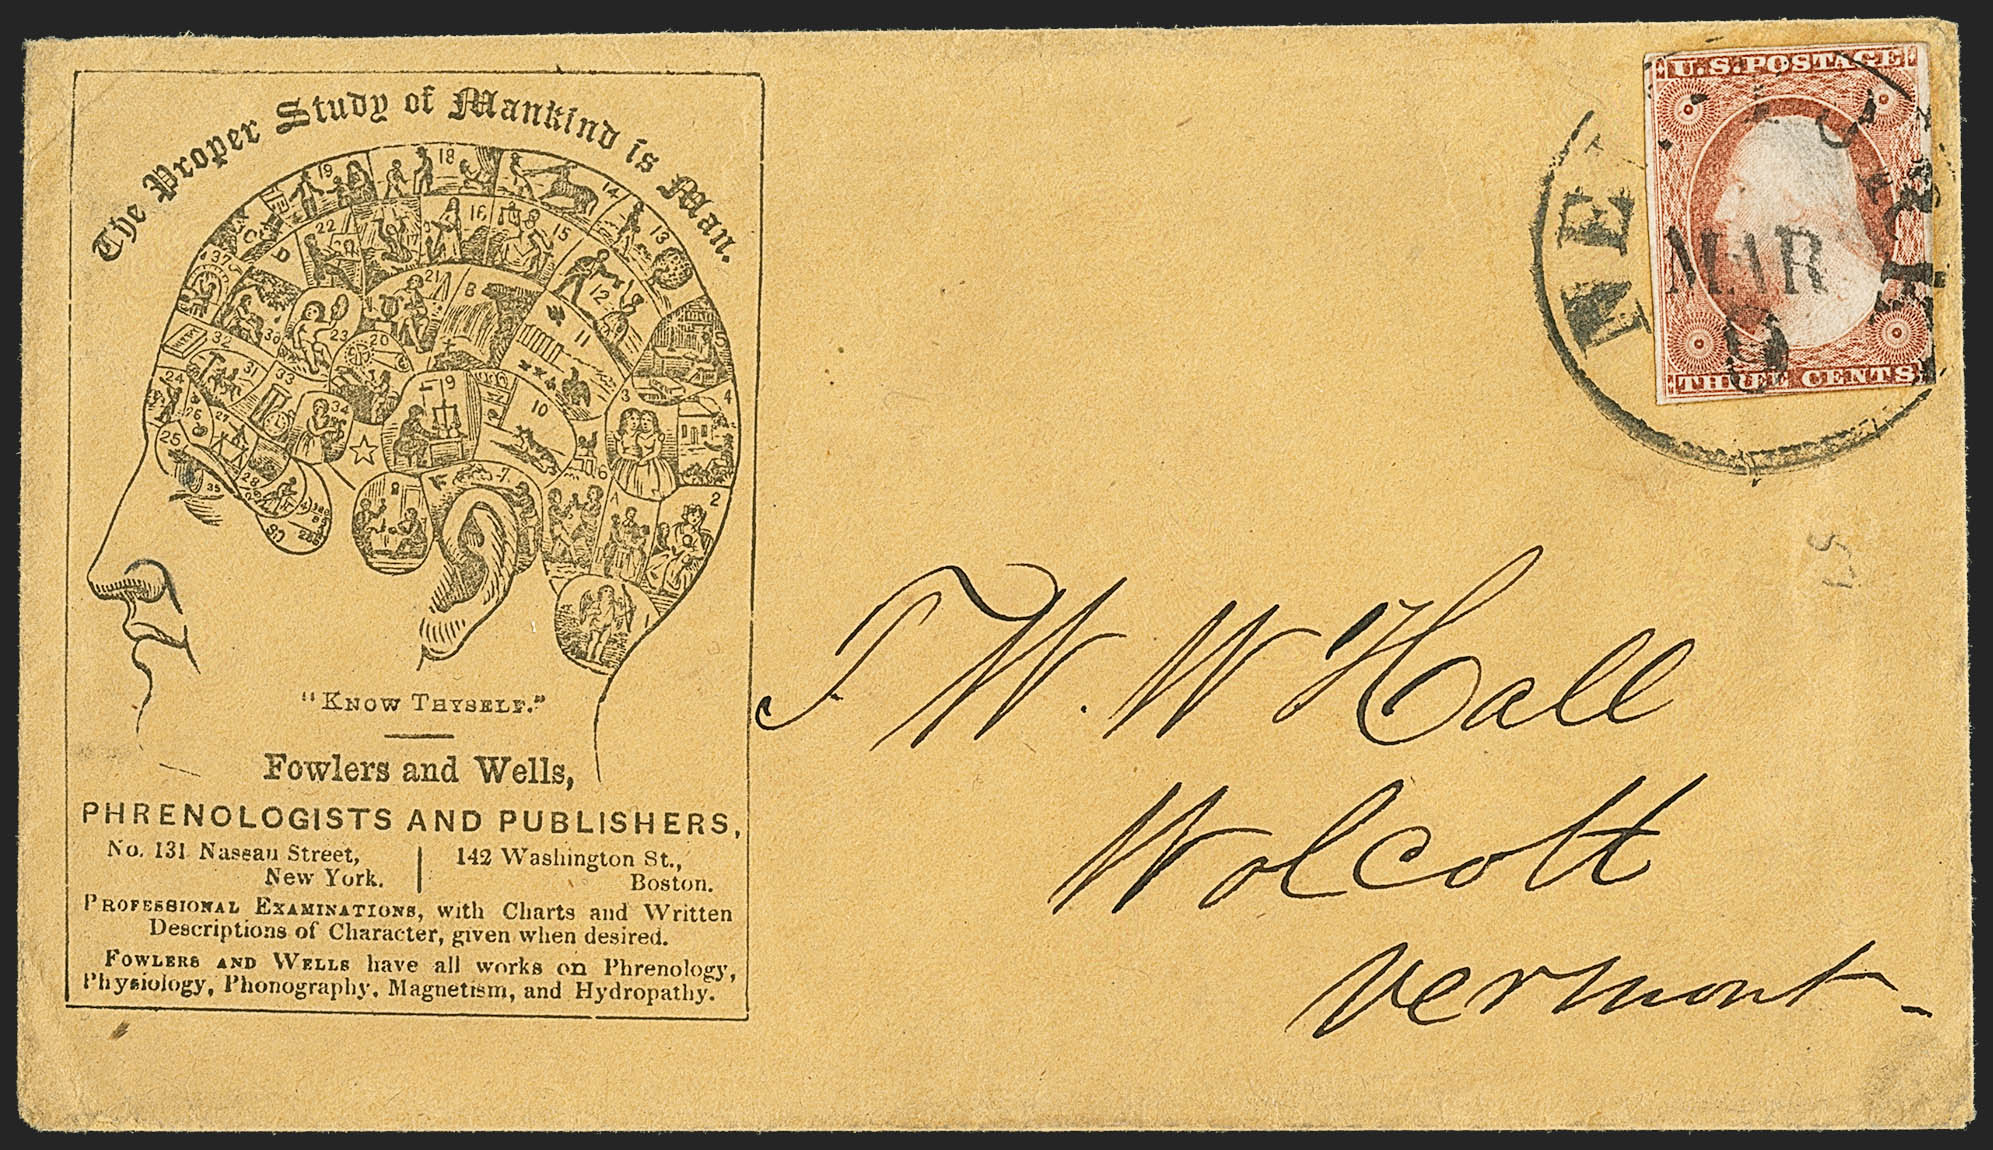 The Proper Study of Mankind is Man.
19
18
14
C
D
22
16
15
13
37
21
B
12
30
23
20
11
5
32
31
33
24
26
27
34
9
10
3
4
25
28
35
8
7
6
A
2
1
"KNOW THYSELF."
Fowlers and Wells,
PHRENOLOGISTS AND PUBLISHERS,
No. 131 Nassau Street,
New York.
142 Washington St.,
Boston.
PROFESSIONAL EXAMINATIONS, with Charts and Written
Descriptions of Character, given when desired.
FOWLERS AND WELLS have all works on Phrenology,
Physiology, Phonography, Magnetism, and Hydropathy.
U.S. POSTAGE
THREE CENTS
NEW YORK
MAR
9
T. W. W Hall
Wolcott
Vermont